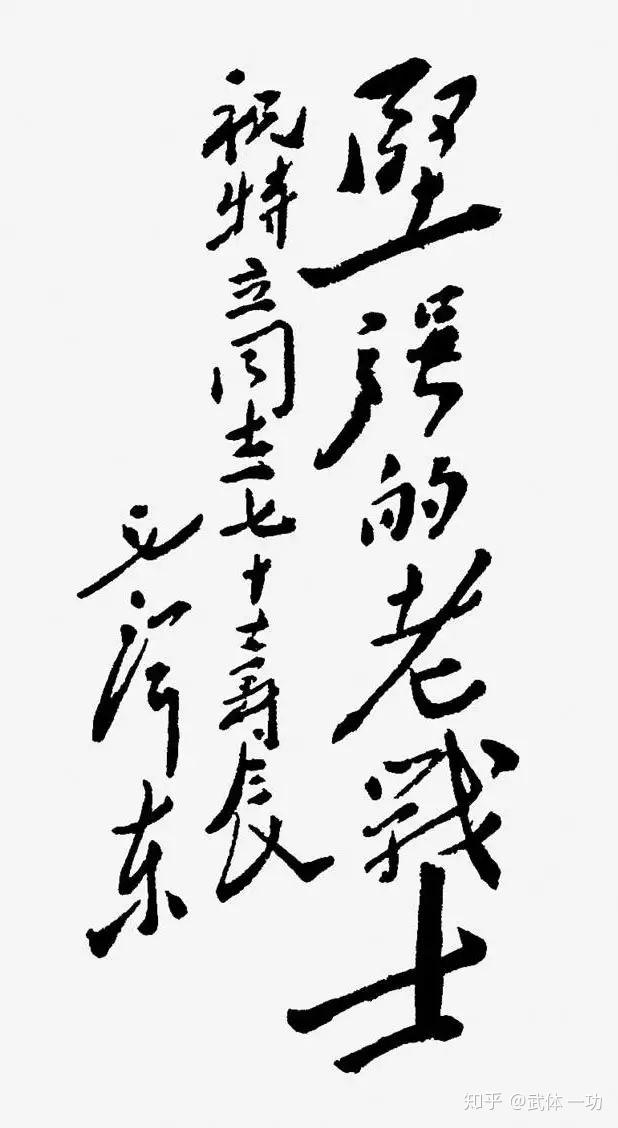 堅强的老戰士
祝特立同志七十壽辰
毛澤东
知乎 @武体一功